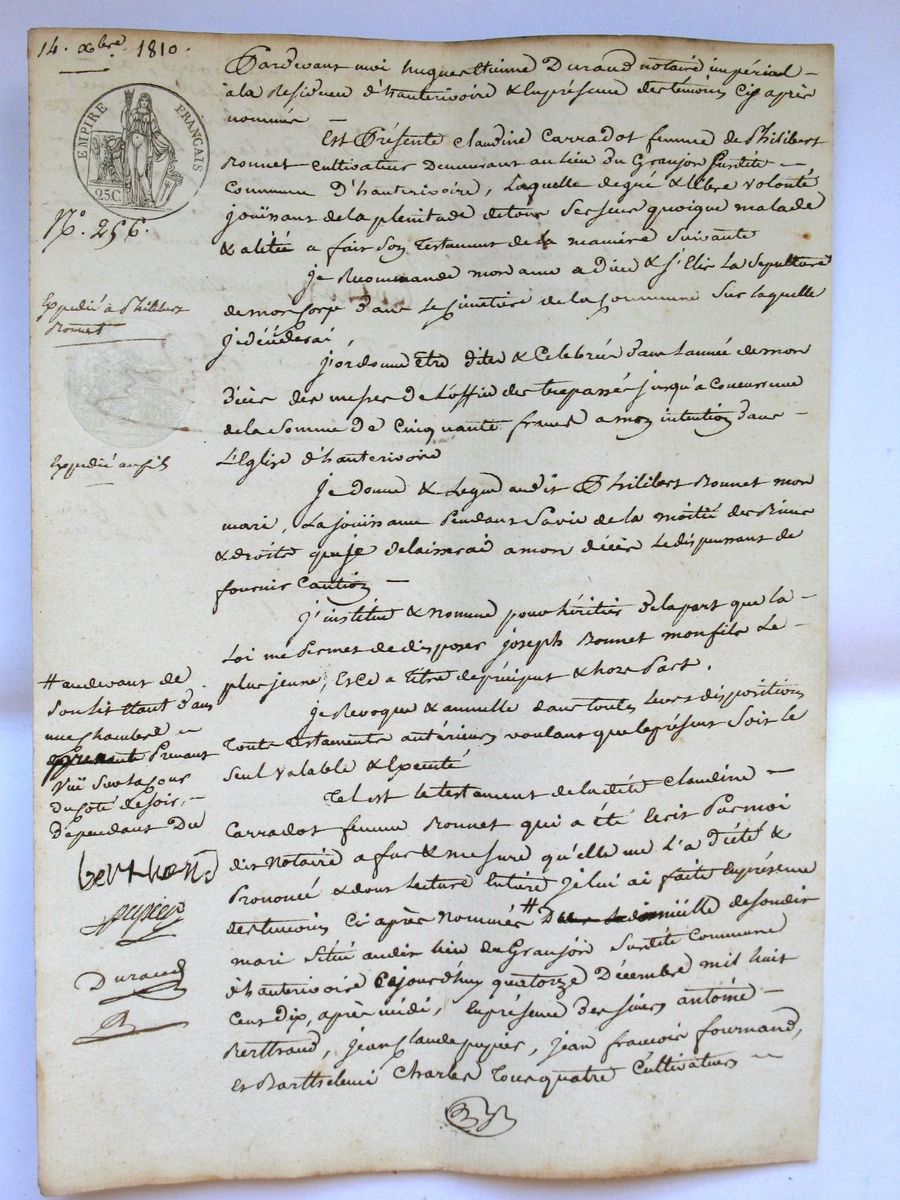 14. xbre 1810.
EMPIRE FRANÇAIS
25C
N.o 256.
Expedié à Philibert
Bonnet
Expedié au fils
Pardevant moi hugues Etienne Durand notaire impérial
à la Résidence d'hauterivoire & En présence des temoins Cy après
nommés
Est Présente Claudine Carradot femme de Philibert
Bonnet Cultivateur Demeurant au lieu du Granjon Susdite
Commune D'hauterivoire, Laquelle de gré & libre volonté
joüissant de la plenitude de tous Ses Sens quoique malade
& alitée a fait Son Testament de la maniere Suivante
je Recommande mon ame a Dieu & j'Elis La Sepulture
de mon Corps dans Le Cimetiere de la Commune Sur laquelle
je décéderai
j'ordonne être dites & Celebrées dans L'année de mon
décès des messes de L'office des trepassés jusqu'à Concurrence
de la Somme De Cinquante francs a mon intention dans
L'Eglise d'hauterivoire
je donne & Legue audit Philibert Bonnet mon
mari, La joüissance Pendant Sa vie de la moitié des Biens
& droits que je delaisserai a mon décès Le dispensant de
fournir Caution
j'institue & nomme pour héritier de la part que la
Loi me Permet de disposer joseph Bonnet mon fils Le
plus jeune, Et Ce a titre de préciput & hors Part.
je Revoque & annulle dans toutes leurs dispositions
Tous Testaments antérieurs voulant que le présent Soit le
Seul valable & Executé
Tel est le testament de la dite Claudine
Carradot femme Bonnet qui a été Ecrit Par moi
dit Notaire a fur & mesure qu'elle me L'a Dicté &
Prononcé & dont Lecture Entiere je lui ai faite En présence
des temoins Ci après nommés # de Son dit
mari Situé audit lieu du Granjon Susdite Commune
d'hauterivoire Cejourd'huy quatorze Décembre mil huit
Cent Dix, après midi, En présence des Sieurs antoine
Berttrand, jean Claude pupier, jean francois fournand,
Et Barthelemi Charles Tous quatre Cultivateurs
# au devant de
Son lit Etant dans
une Chambre
Prenant
Vüe Sur la Cour
du Coté de Soir,
dépendant Du
berthrand
pupier
Durand